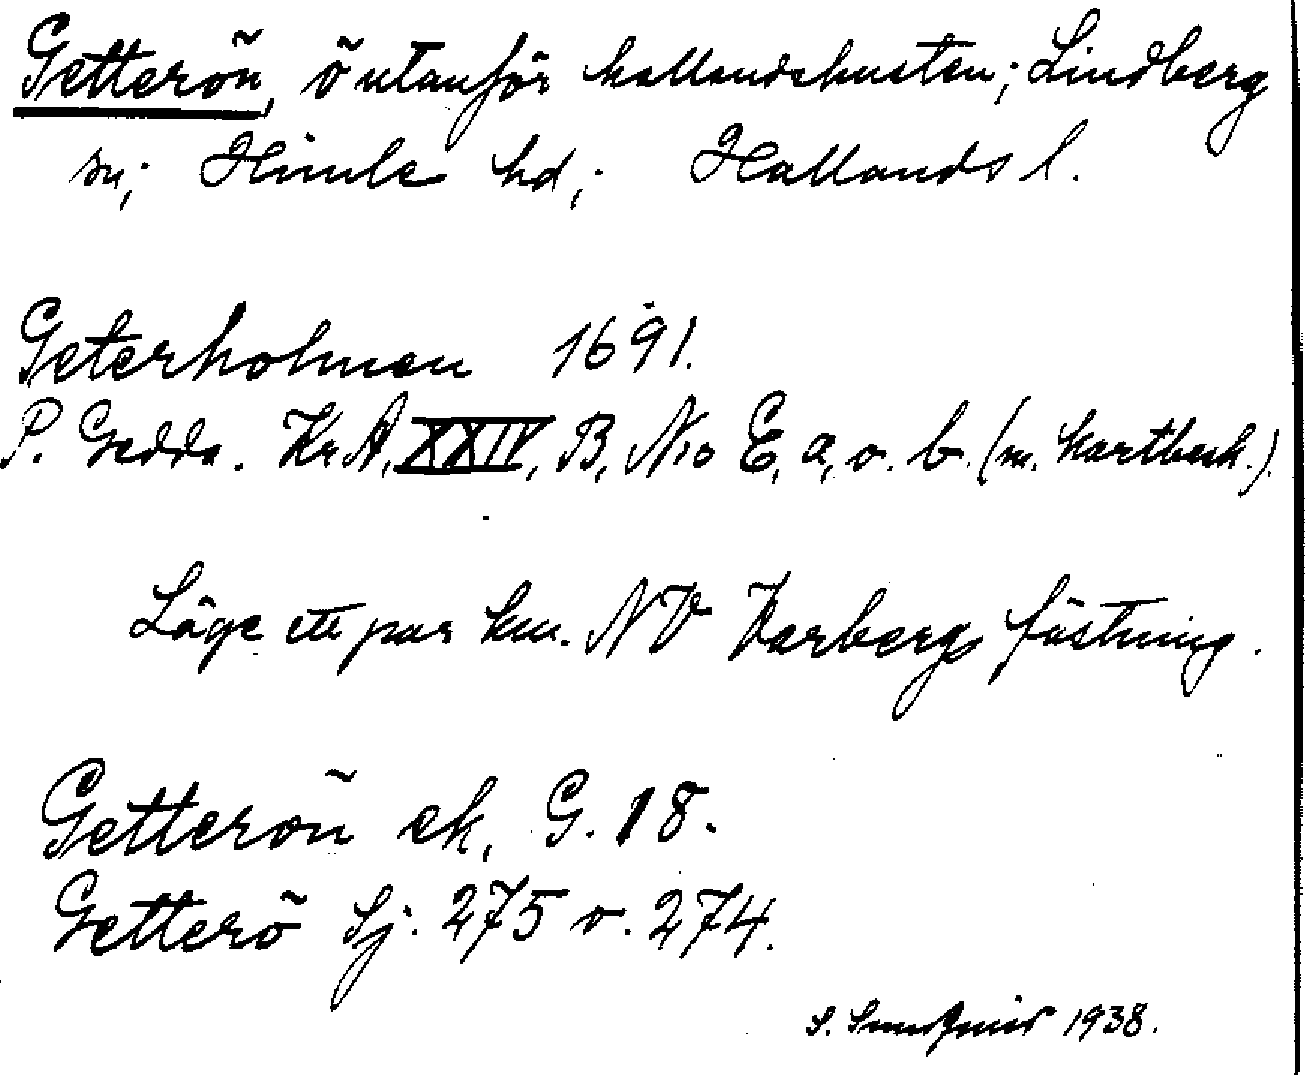 Getterön, ö utanför hallandskusten; Lindberg
sn; Himle hd; Hallands l.
Geterholmen 1691.
P. Gedda. Kr.A, XXIV, B, No E, a, o. b. (m. kartbesk.).
Läge ett par km. NV Varbergs fästning.
Getterön ek, G. 18.
Getterö Sj. 275 o. 274.
S. 1938.